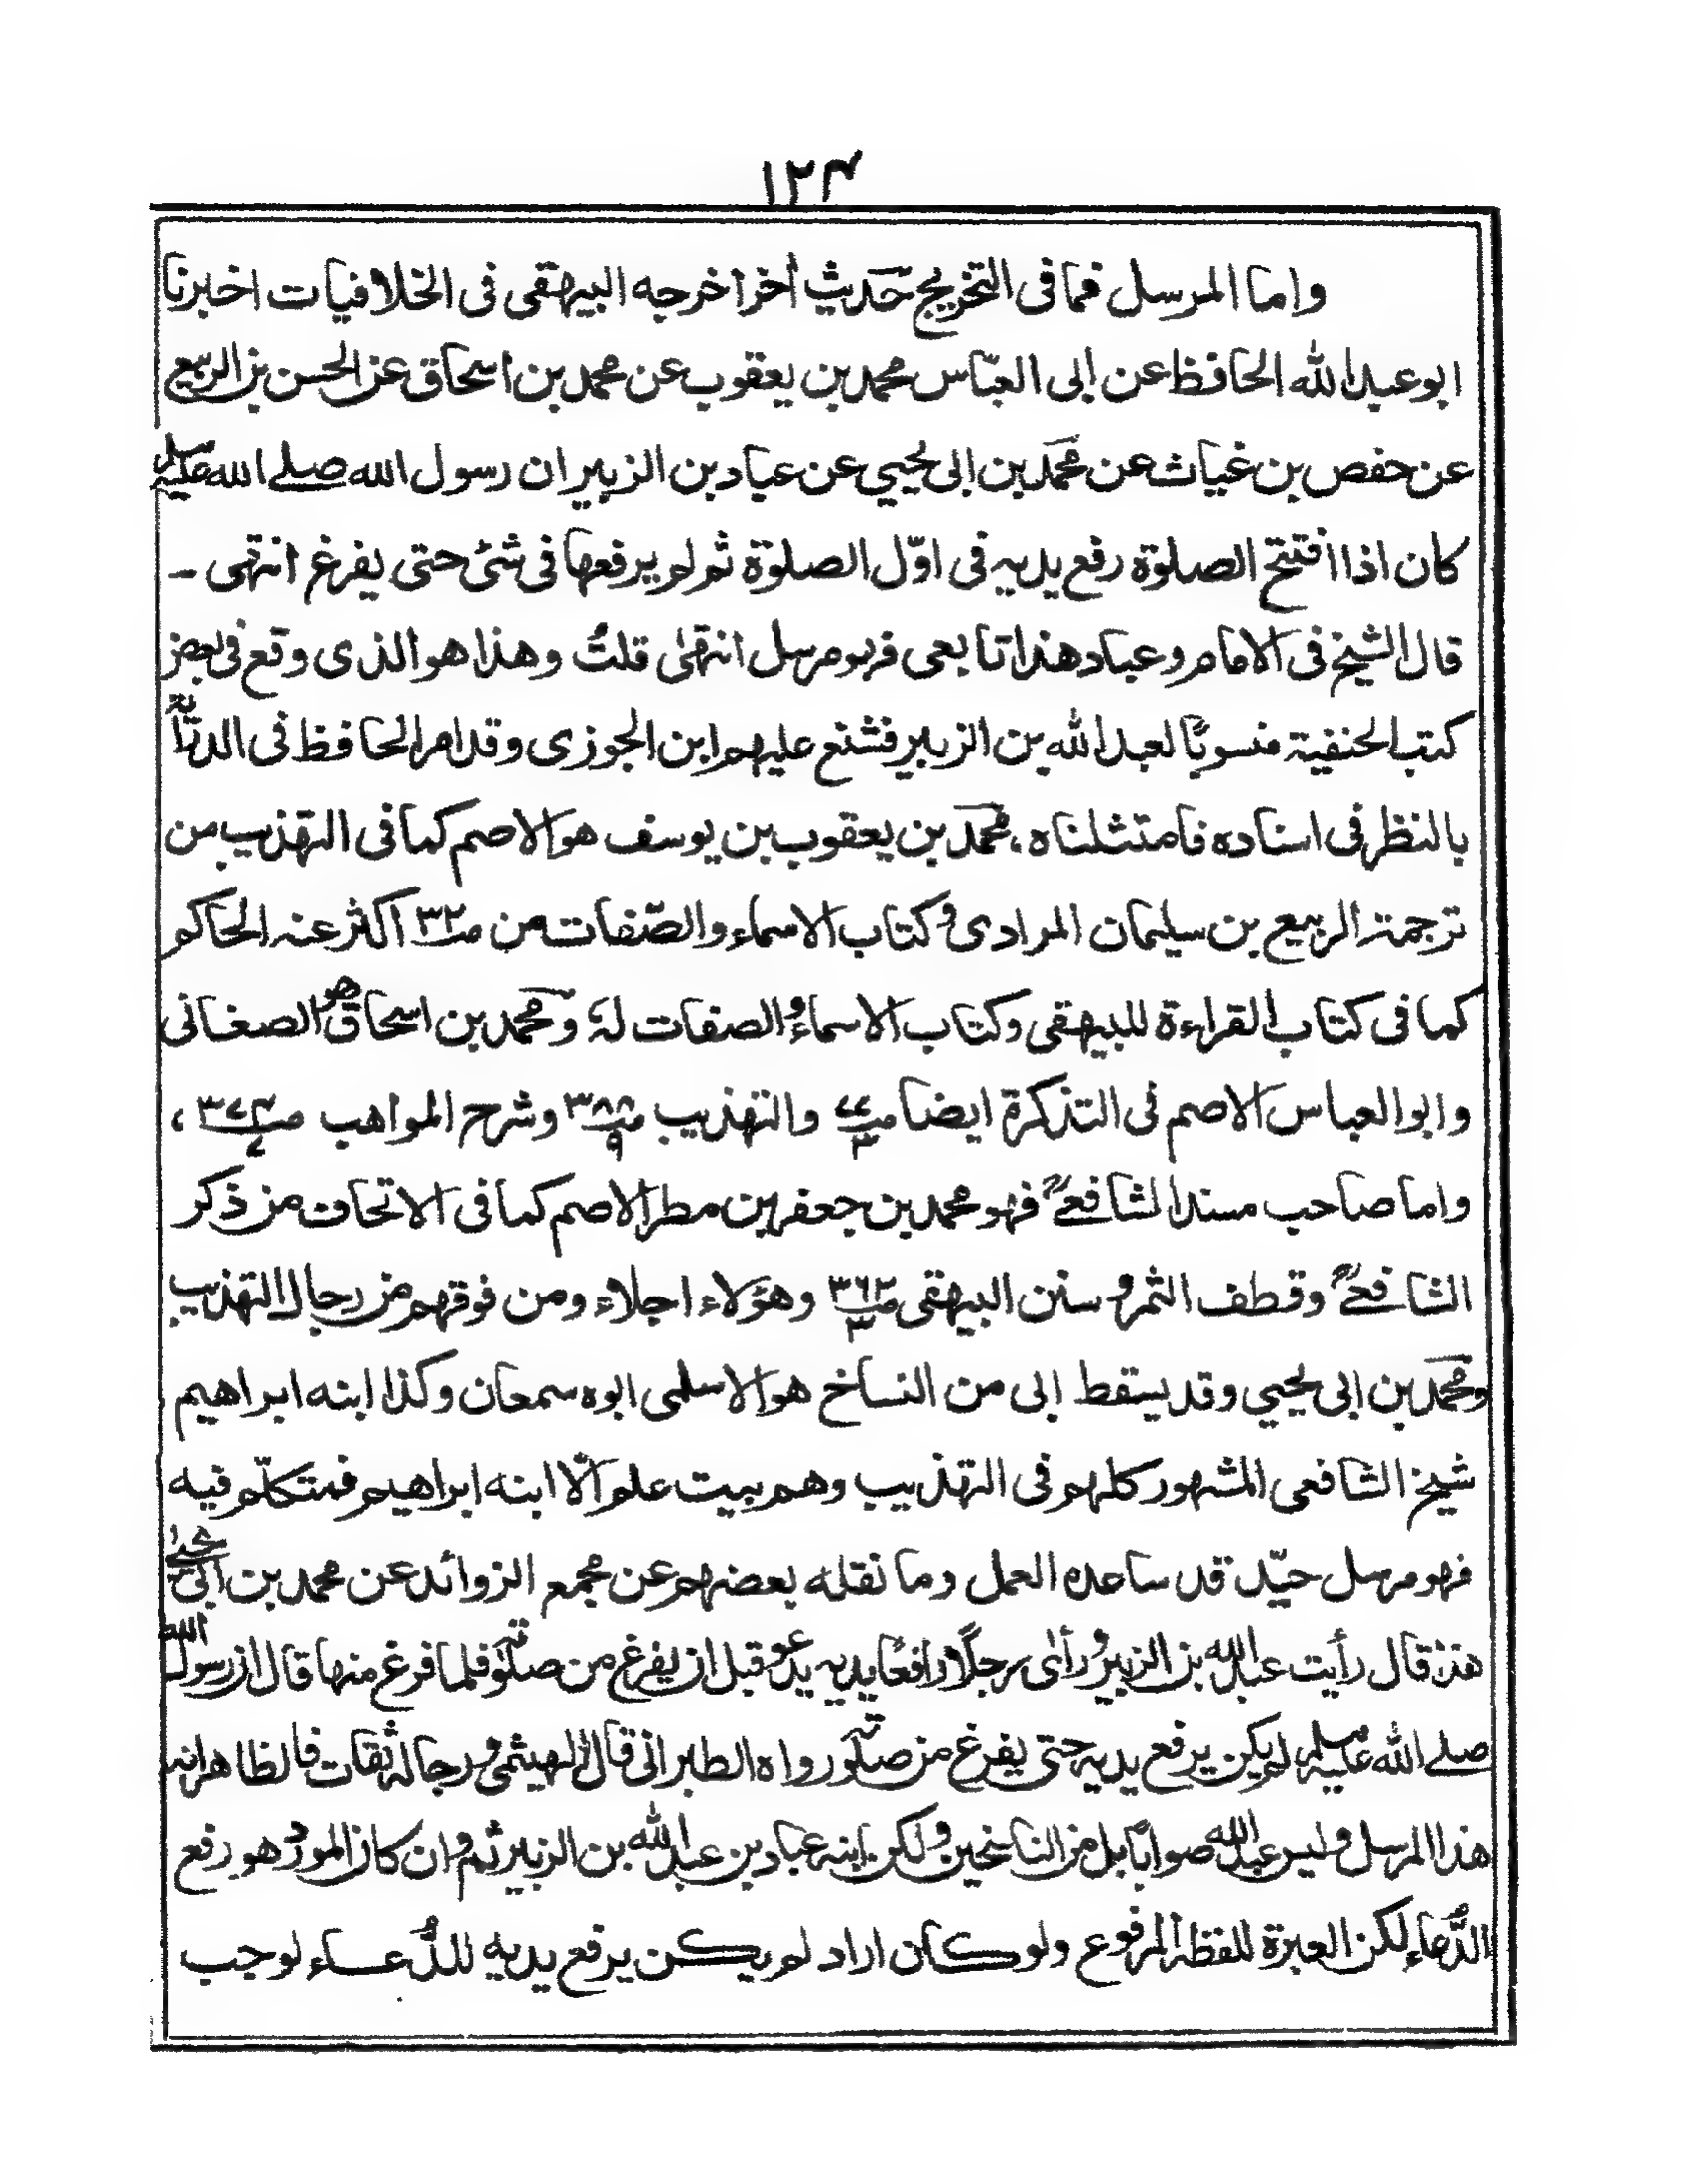 ١٢٤
واما المرسل فما فى التخريج حديث أخرأخرجه البيهقى فى الخلافيات اخبرنا
ابو عبد الله الحافظ عن إبى العبّاس محمد بن يعقوب عن محمد بن اسحاق عن الحسن بن الربيع
عن حفص بن غياث عن محمد بن ابى يحيي عن عباد بن الزبير ان رسول الله صلے الله عليه وسلم
كان اذا افتتح الصلوة رفع يديه فى اوّل الصلوة ثم لم يرفعها فى شئ حتى يفرغ انتهى ـ
قال الشيخ فى الامام وعباد هذا تابعى فهو مرسل انتهٰى قلتُ وهذا هو الذى وقع فى بعض
كتب الحنفية منسوبًا لعبد الله بن الزبير فشنع عليهم ابن الجوزى وقد امر الحافظ فى الدراية
بالنظر فى اسناده فامتثلناه ، محمد بن يعقوب بن يوسف هو الاصم كما فى التهذيب من
ترجمة الربيع بن سليمان المرادى و كتاب الاسماء والصّفات من ص٣٢ اكثر عنه الحاكم
كما فى كتاب القراءة للبيهقى وكتاب الاسماء و الصفات لهٗ و محمد بن اسحاق هو الصغانى
وابو العباس الاصم فى التذكرة ايضا ص٧٧ ٣ والتهذيب ص٣٨٨ ٩ وشرح المواهب ص٣٧٤ ٧ ،
واما صاحب مسند الشافعےؒ فهو محمد بن جعفر بن مطر الاصم كما فى الاتحاف من ذكر
الشافعےؒ وقطف الثمر و سنن البيهقى ص٣٦٢ ٣ وهؤلاء اجلاء ومن فوقهم من رجال التهذيب
ومحمد بن ابى يحيي وقد يسقط إبى من النساخ هو الاسلمى ابوه سمعان وكذا ابنه ابراهيم
شيخ الشافعى المشهور كلهم فى التهذيب وهم بيت علم الّا ابنه ابراهيم فمتكلّم فيه
فهو مرسل جيّد قد ساعده العمل وما نقله بعضهم عن مجمع الزوائد عن محمد بن ابى يحيٰے
هذا قال رأيت عبد الله بن الزبير و رأى رجلًا رافعًا يديه يدعو قبل ان يفرغ من صلوته فلما فرغ منها قال ان رسول الله
صلے الله عليه وسلم لم يكن يرفع يديه حتى يفرغ من صلوته رواه الطبرانى قال الهيثمى و رجاله ثقات فالظاهر انه
هذا المرسل و ليس عبد الله صوابًا بل من الناسخين و لكن ابنه عباد بن عبد الله بن الزبير ثم و ان كان المورد هو رفع
الدّعاء لكن العبرة للفظه المرفوع ولو كان اراد لم يكن يرفع يديه للدُّعاء لوجب